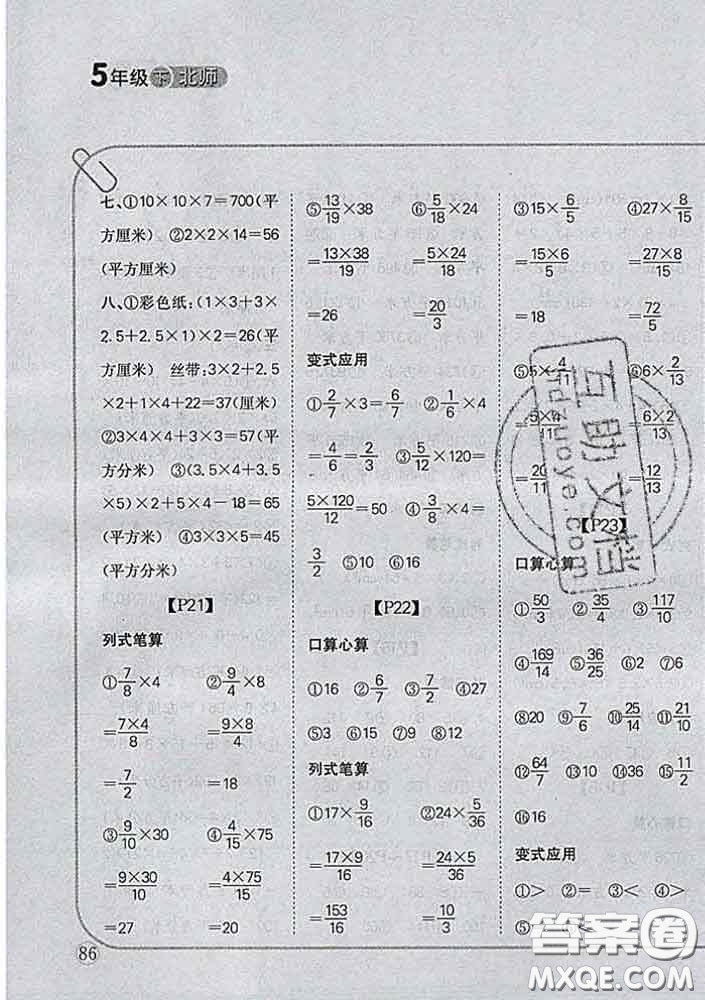 5年级 下 北师
七、①10×10×7=700(平
方厘米) ②2×2×14=56
(平方厘米)
八、①彩色纸:(1×3+3×
2.5+2.5×1)×2=26(平
方厘米) 丝带:3×2+2.5
×2+1×4+22=37(厘米)
②3×4×4+3×3=57(平
方分米) ③(3.5×4+3.5
×5)×2+5×4-1.8=65
(平方米) ④3×3×5=45
(平方分米)
【P21】
列式笔算
①7/8×4 ②9/4×8
=7×4/8 =9×8/4
=7/2 =18
③9/10×30 ④4/15×75
=9×30/10 =4×75/15
=27 =20
⑤13/19×38 ⑥5/18×24
=13×38/19 =5×24/18
=26 =20/3
变式应用
①2/7×3=6/7 ②1/6×4
=4/6=2/3 ③5/12×120=
5×120/12=50 ④3/8×4=
3/2 ⑤10 ⑥16
【P22】
口算心算
①16 ②6/7 ③2/7 ④27
⑤3 ⑥15 ⑦9 ⑧12
列式笔算
①17×9/16 ②24×5/36
=17×9/16 =24×5/36
=153/16 =10/3
③15×6/5 ④27×8/15
=15×6/5 =27×8/15
=18 =72/5
⑤5×4/11 ⑥6×2/13
=5×4/11 =6×2/13
=20/11 =12/13
【P23】
口算心算
①50/3 ②35/4 ③117/10
④169/14 ⑤36/25 ⑥2 ⑦6
⑧20 ⑨7/6 ⑩25/14 ⑪21/10
⑫64/7 ⑬10 ⑭36 ⑮11/2
⑯16
变式应用
①> ②= ③< ④>
⑤
86
互助文档
jfdzuoye.com
答案圈
MXQE.COM